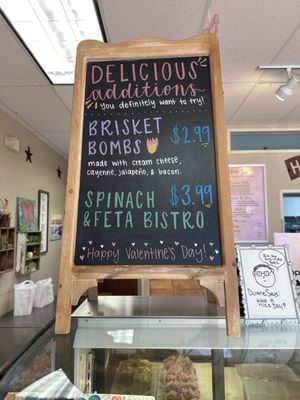 DELICIOUS
additions
you definitely want to try!
BRISKET
BOMBS
$2.99
made with cream cheese,
cayenne, jalapeño, & bacon.
SPINACH
& FETA BISTRO
$3.99
Happy Valentine's Day!
Duane Says,
Have a
nice Day!